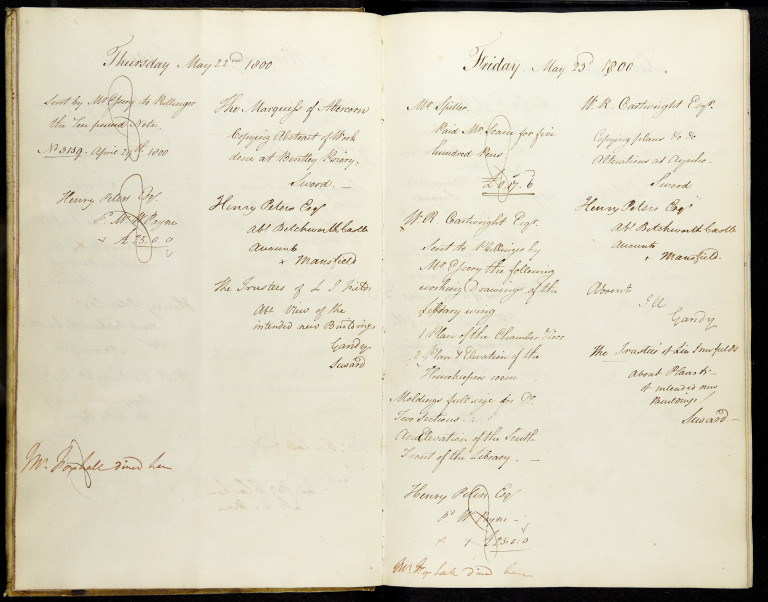 Thursday May 22nd 1800
Sent by Mr Essery to
the Ten pound Note.
No 3159. April 29th. 1800
Henry Peters Esqr
Pd Mr W Payne
x £ 25. 0. 0
Mr dined here
The Marquiss of Abercorn
Copying Abstract of Work
done at Bentley Priory.
Seward. —
Henry Peters Esqr
Abt. Betchworth Castle
Accounts
x Mansfield
The Trustees of L I Fields
Abt. View of the
intended new Buildings
Gandy
Seward
Friday May 23d. 1800
Mr Spiller
Paid Mr for five
hundred Pens
£0.17.6
W. R. Cartwright Esqr.
Sent to by
Mr Essery the following
working Drawings of the
Library wing
1 Plan of the Chamber Floor
2 Plan & Elevation of the
Housekeepers room
Moldings full size for Do.
Two Sections.
An Elevation of the South
Front of the Library. —
Henry Peters Esqr
Pd W Payne —
x x £25.0.0
Mr dined here
W. R. Cartwright Esqr.
Copying plans &c &c
Alterations at Aynho.
Seward
Henry Peters Esqr
Abt. Betchworth Castle
Accounts
x Mansfield.
Absent
Gandy
The Trustees of Lin Inn fields
About Plans &c —
of intended new
Buildings
Seward —